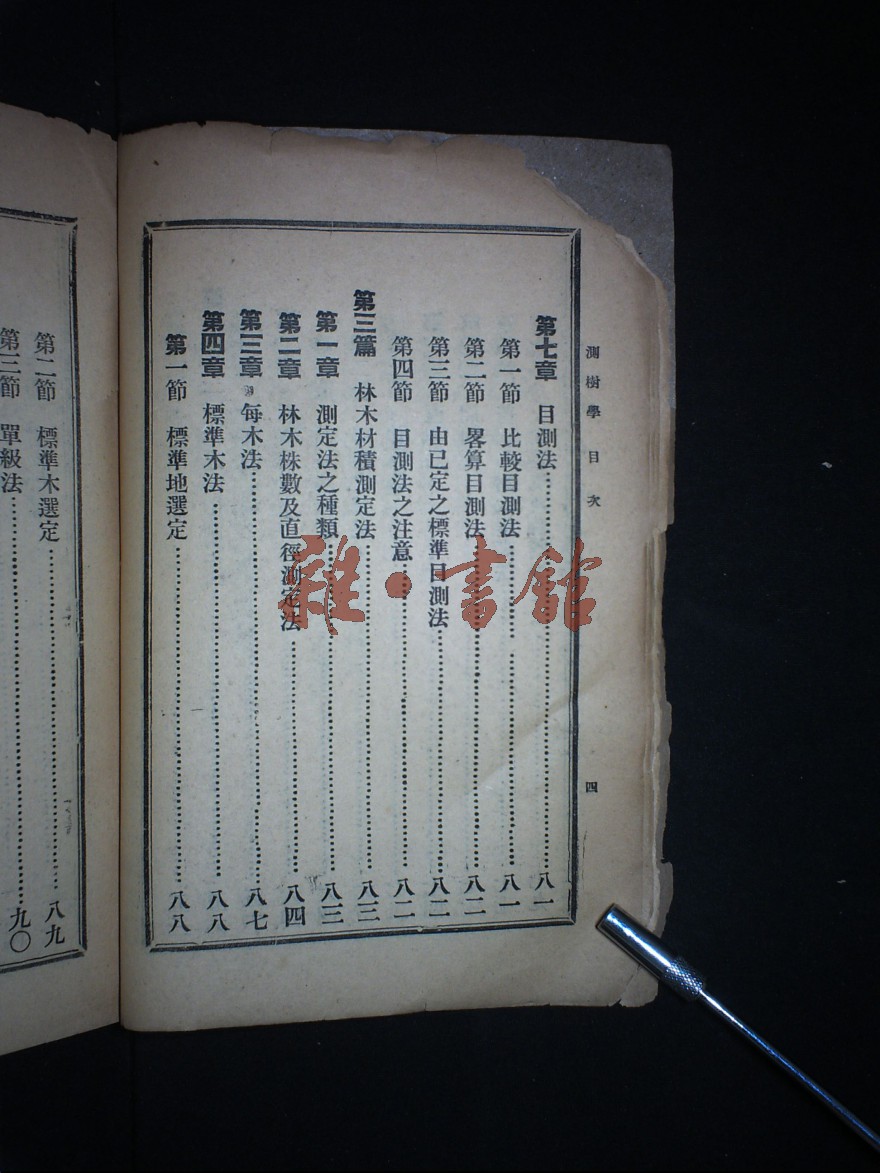 測樹學 目次 四
第七章 目測法……八一
第一節 比較目測法……八一
第二節 畧算目測法……八二
第三節 由已定之標準目測法……八二
第四節 目測法之注意……八二
第三篇 林木材積測定法……八三
第一章 測定法之種類……八三
第二章 林木株數及直徑測定法……八四
第三章 每木法……八七
第四章 標準木法……八八
第一節 標準地選定……八八
第二節 標準木選定……八九
第三節 單級法……九〇
雜·書館